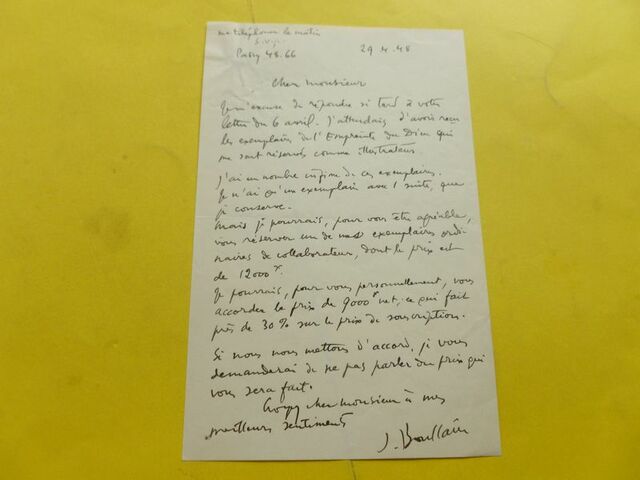 me téléphoner le matin
S.V.P.
Passy 48.66
29.4.48
Cher Monsieur
Je m'excuse de répondre si tard à votre
lettre du 6 avril. J'attendais d'avoir reçu
les exemplaires de l'Empreinte du Dieu qui
me sont réservés comme illustrateur.
J'ai un nombre infime de ces exemplaires.
Je n'ai qu'un exemplaire avec 1 suite, que
je conserve.
Mais je pourrais, pour vous être agréable,
vous réserver un de mes exemplaires ordi-
naires de collaborateur, dont le prix est
de 12000 f.
Je pourrais, pour vous personnellement, vous
accorder le prix de 9000 f net, ce qui fait
près de 30 % sur le prix de souscription.
Si nous nous mettons d'accord, je vous
demanderai de ne pas parler du prix qui
vous sera fait.
Croyez cher Monsieur à mes
meilleurs sentiments
J. Boullaire